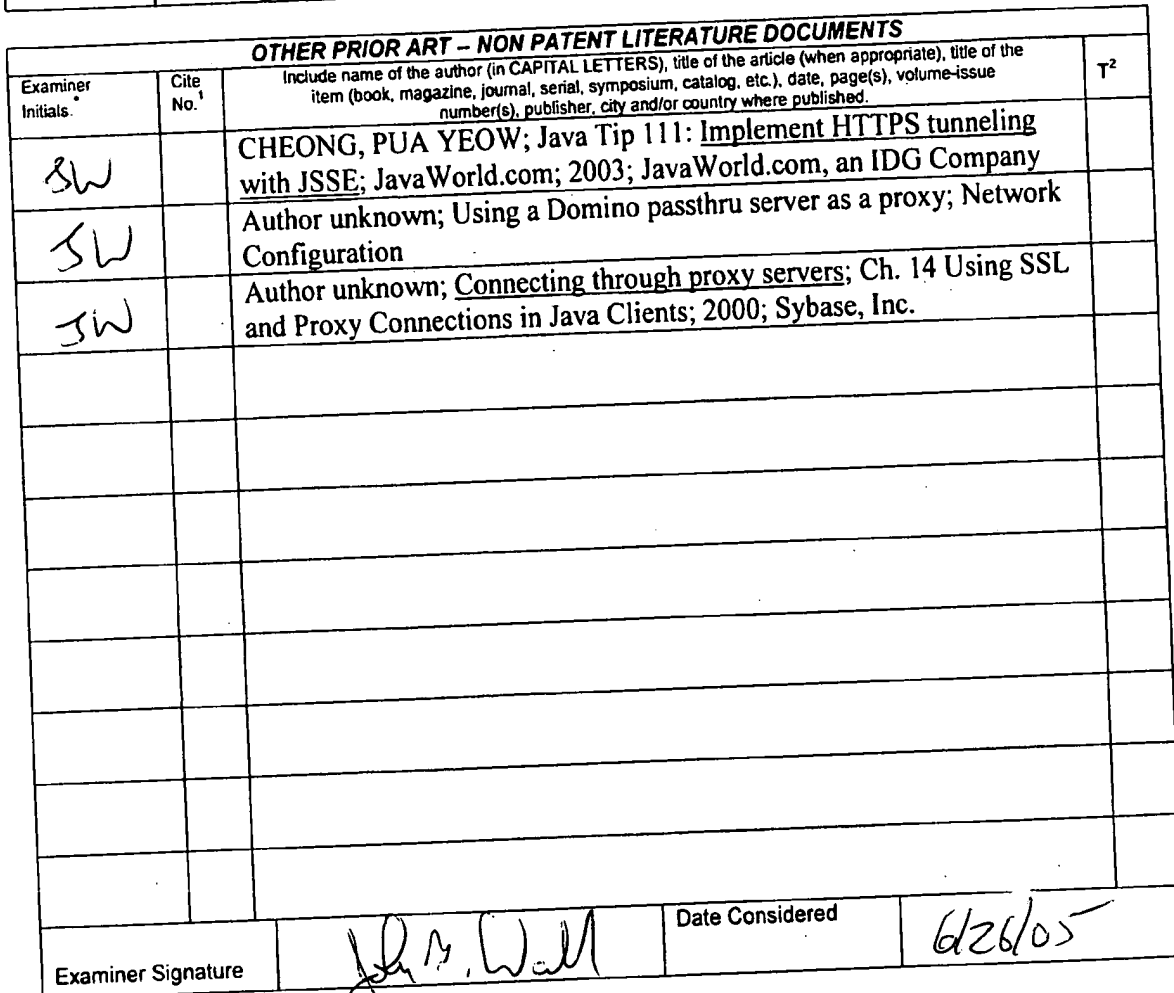 OTHER PRIOR ART – NON PATENT LITERATURE DOCUMENTS
Examiner Initials.*
Cite No.¹
Include name of the author (in CAPITAL LETTERS), title of the article (when appropriate), title of the
item (book, magazine, journal, serial, symposium, catalog, etc.), date, page(s), volume-issue
number(s), publisher, city and/or country where published.
T²
JW
CHEONG, PUA YEOW; Java Tip 111: Implement HTTPS tunneling
with JSSE; JavaWorld.com; 2003; JavaWorld.com, an IDG Company
JW
Author unknown; Using a Domino passthru server as a proxy; Network
Configuration
JW
Author unknown; Connecting through proxy servers; Ch. 14 Using SSL
and Proxy Connections in Java Clients; 2000; Sybase, Inc.
Examiner Signature
Date Considered
6/26/05